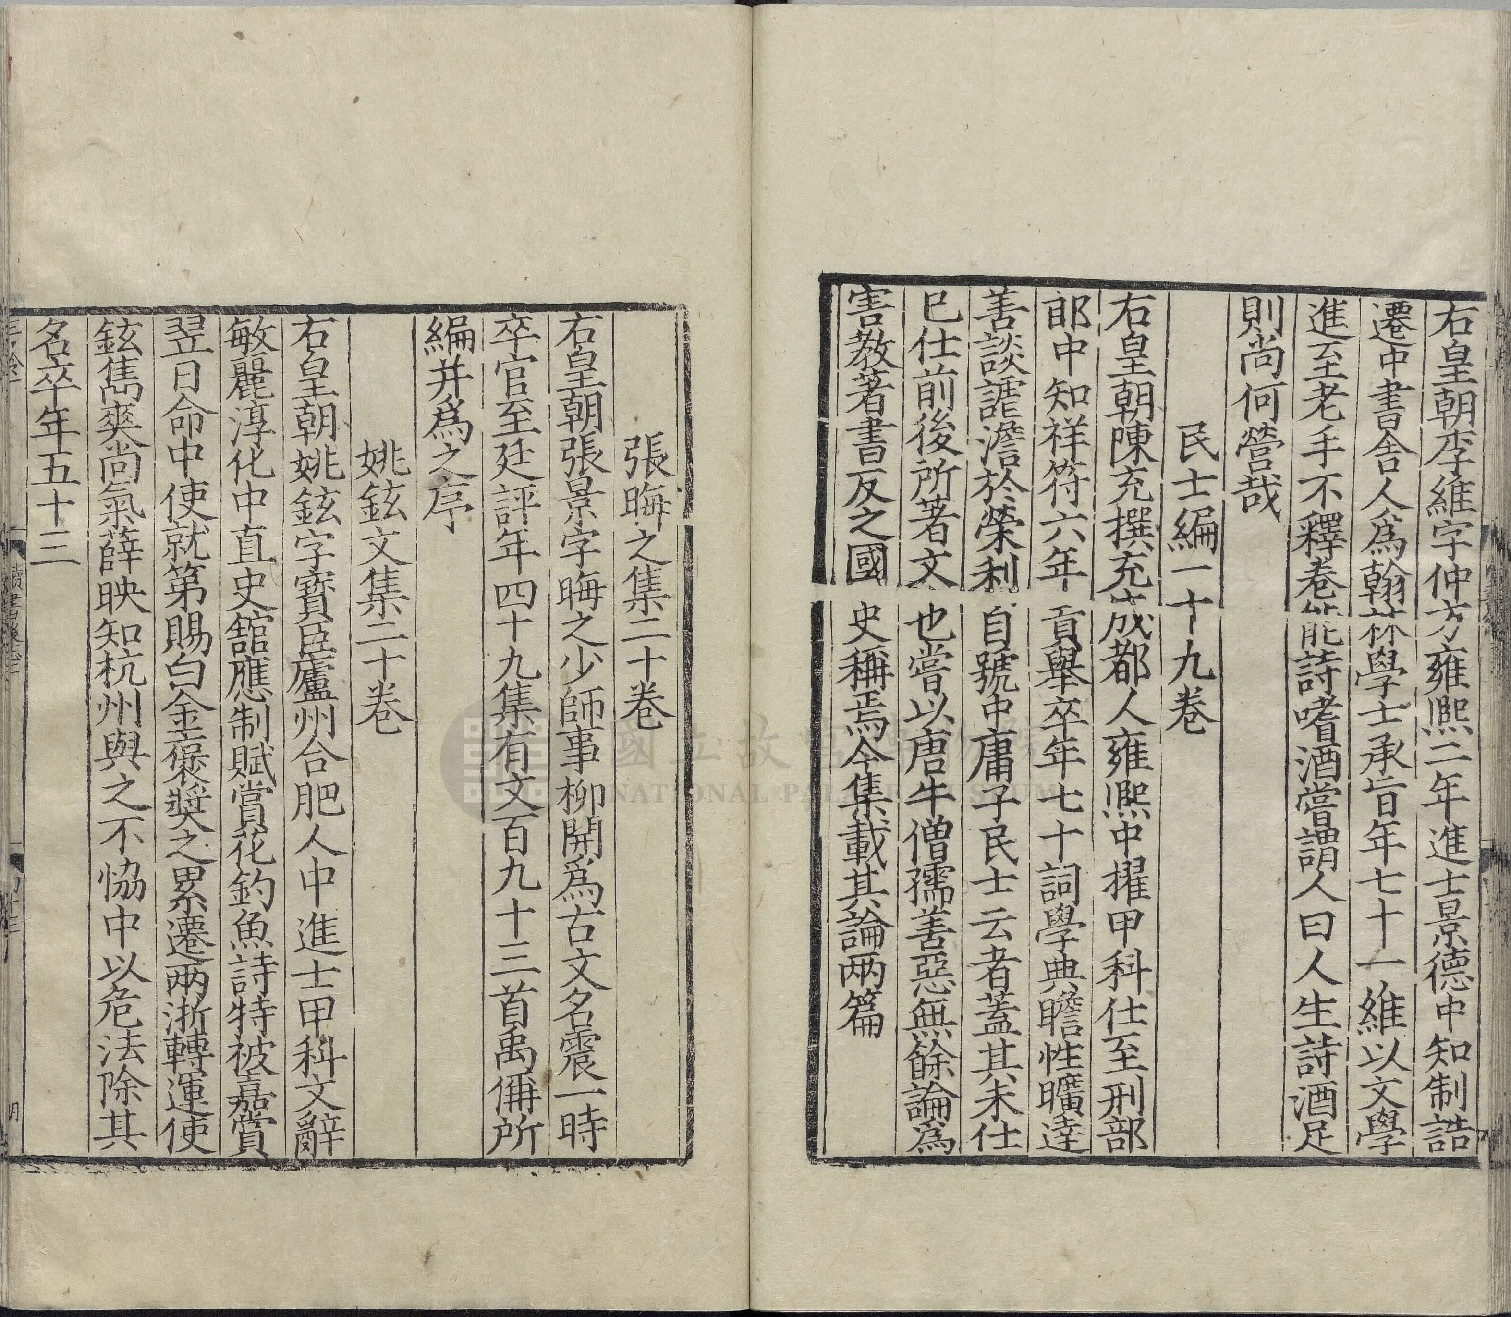 右皇朝李維字仲方雍熙二年進士景德中知制誥
遷中書舍人爲翰林學士承旨年七十一維以文學
進至老手不釋卷能詩嗜酒嘗謂人曰人生詩酒足
則尚何營哉
民士編一十九卷
右皇朝陳充撰充成都人雍熙中擢甲科仕至刑部
郎中知祥符六年貢舉卒年七十詞學典瞻性曠逹
善談謔澹於榮利自號中庸子民士云者蓋其未仕
已仕前後所著文也嘗以唐牛僧孺善惡無餘論爲
害教著書反之國史稱焉今集載其論兩篇
張晦之集二十卷
右皇朝張景字晦之少師事柳開爲古文名震一時
卒官至廷評年四十九集有文百九十三首禹偁所
編并爲之序
姚鉉文集二十卷
右皇朝姚鉉字寶臣廬州合肥人中進士甲科文辭
敏麗淳化中直史舘應制賦賞花釣魚詩特被嘉賞
翌日命中使就第賜白金襃奬之累遷兩浙轉運使
鉉雋爽尚氣薛映知杭州與之不恊中以危法除其
名卒年五十三
國立故宮博物院
NATIONAL PALACE MUSEUM